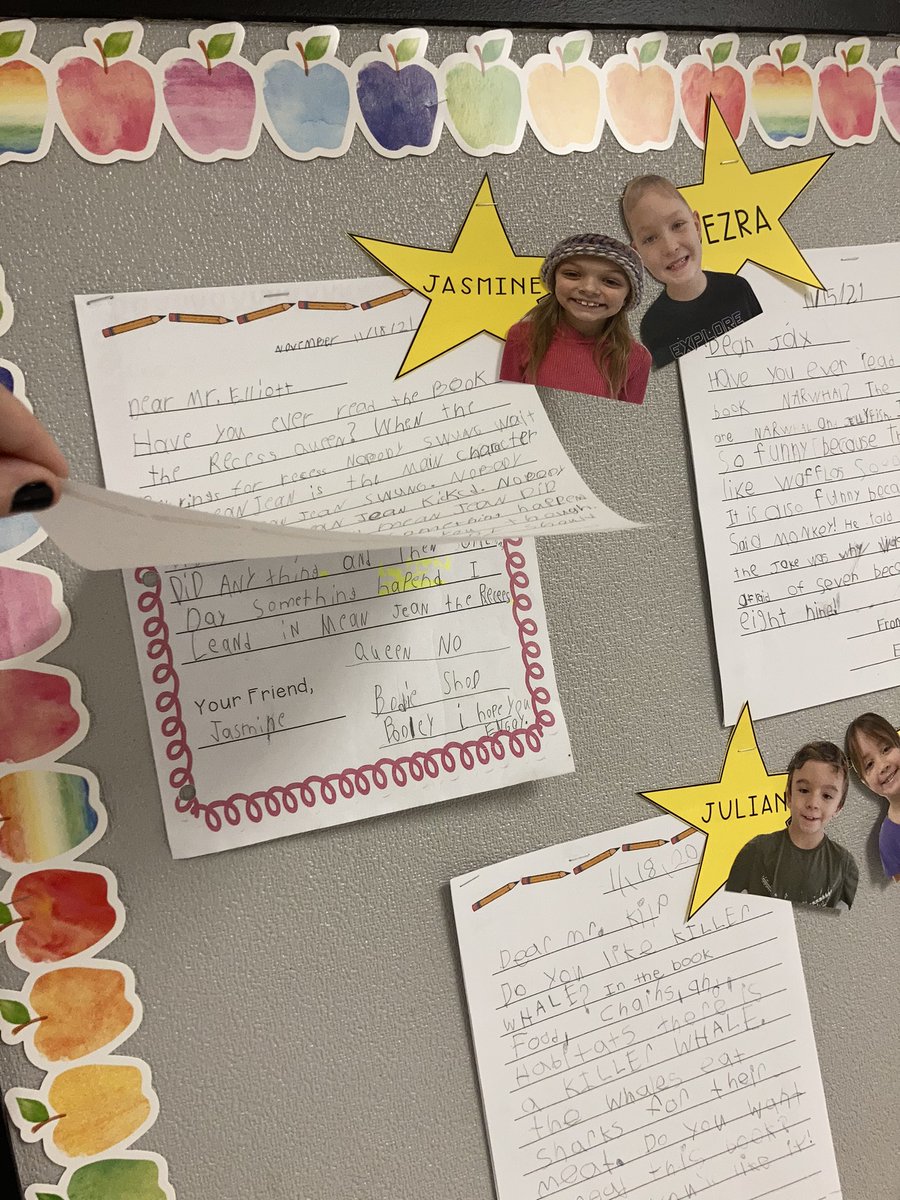 JASMINE
EZRA
EXPLORE
November 11/18/21
Dear Mr. Elliott
Have you ever read the BOOK
the Recess Queen? When the
rings for recess NoBoDY SWUNG Wait
Jean is the main character
Jean SWUNG. NoBoDY
Jean Kicked NoBoDY
mean Jean DiD
DiD ANY thing and then
Day something hapend I
Leand in Mean Jean the Recees
Queen NO
Your Friend,
Jasmine
Bodie Shop
Booley i hope you
Enjoy.
11/5/21
Dear Jax
Have you ever read
book NARWHAL? The
are NARWHAL and
So funny because
like waffles
It is also funny
Said monkey! He told
the Joke was why
afraid of seven
eight nine!
From
JULIAN
11,18,20
Dear mr. Kilp
Do you like KILLER
WHALE? In the book
Food, Chains, and,
Habitats there is
a KILLER WHALE.
the whales eat
sharks for their
meat. Do you want
read this book?
like it!